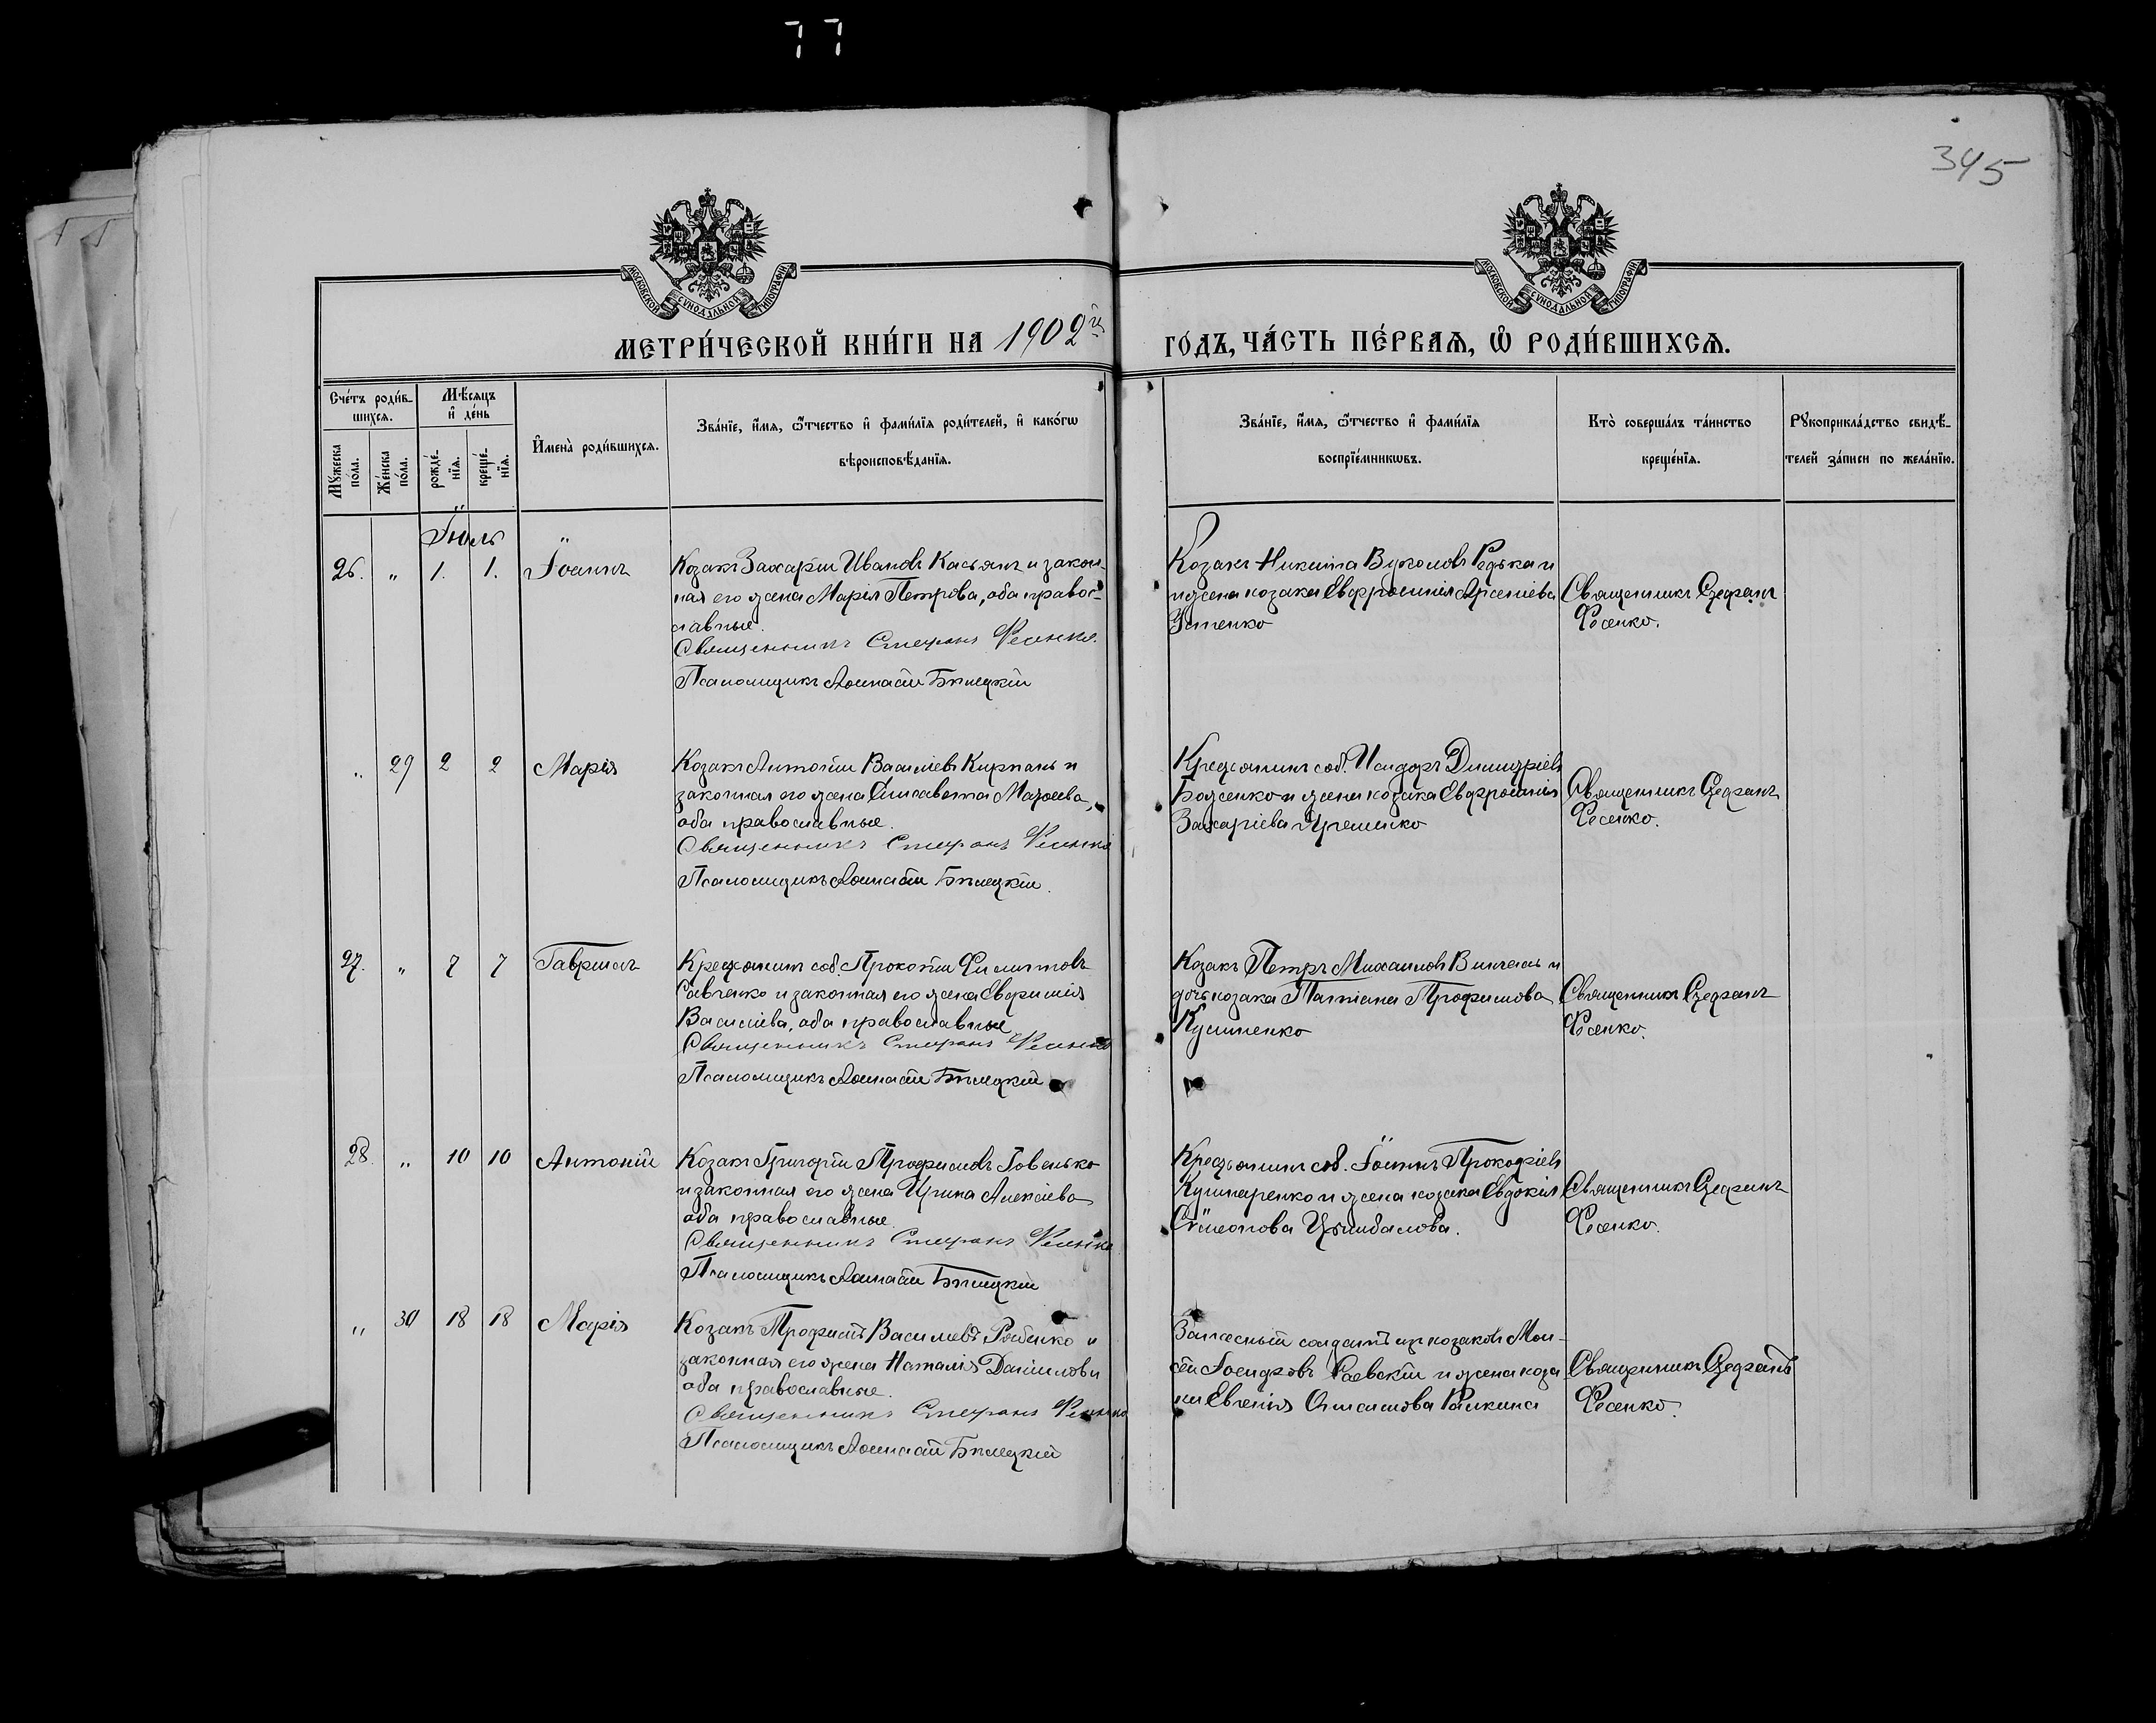 77
345
МОСКОВСКОЙ СѴНОДАЛЬНОЙ ТИПОГРАФІИ
МОСКОВСКОЙ СѴНОДАЛЬНОЙ ТИПОГРАФІИ
МЕТРИ́ЧЕСКОЙ КНИ́ГИ НА 1902й
ГО́ДЪ, ЧА́СТЬ ПЕ́РВАѦ, Ѡ҆ РОДИ́ВШИХСѦ.
Сче́тъ роди́в-
шихсѧ.
Мꙋ́жеска по́ла.
Же́нска по́ла.
Мѣ́сѧцъ
и҆ де́нь
рожде́-
нїѧ.
креще́-
нїѧ.
И҆мена̀ роди́вшихсѧ.
Зва́нїе, и҆́мѧ, ѻ҆́тчество и҆ фами́лїѧ роди́телей, и҆ како́гѡ
вѣроисповѣ́данїѧ.
Зва́нїе, и҆́мѧ, ѻ҆́тчество и҆ фами́лїѧ
воспрїе́мникѡвъ.
Кто̀ соверша́лъ та́инство
креще́нїѧ.
Рꙋкоприкла́дство свидѣ́-
телей за́писи по жела́нїю.
Іюль
26. „ 1. 1. Іоаннъ
Козакъ Захарій Ивановъ Касьянъ и закон-
ная его жена Марія Петрова, оба правос-
лавные.
Священникъ Стефанъ Фесенко.
Псаломщикъ Аѳанасій Бѣлецкій
Козакъ Никита Вуколовъ Редька и
жена козака Евфросинія Арсеніева
Устенко
Священникъ Стефанъ
Фесенко.
„ 29 2 2 Марія
Козакъ Антоній Василіевъ Кирпань и
законная его жена Елисавета Маѳеева,
оба православные.
Священникъ Стефанъ Фесенко
Псаломщикъ Аѳанасій Бѣлецкій.
Крестьянинъ соб. Исидоръ Димитріевъ
Боженко и жена козака Евфросинія
Захаріева Яременко
Священникъ Стефанъ
Фесенко.
27. „ 7 7 Гавріилъ
Крестьянинъ соб. Прокопій Филипповъ
Савченко и законная его жена Евфимія
Василіева, оба православные
Священникъ Стефанъ Фесенко
Псаломщикъ Аѳанасій Бѣлецкій
Козакъ Петръ Михаиловъ и
дочь козака Татіана Трофимова
Священникъ Стефанъ
Фесенко.
28. „ 10 10 Антоній
Козакъ Григорій Трофимовъ Говенько
и законная его жена Ирина Алексіева
оба православные
Священникъ Стефанъ Фесенко
Псаломщикъ Аѳанасій Бѣлецкій
Крестьянинъ соб. Іоаннъ Прокофіевъ
Кушнаренко и жена козака Евдокія
Сѵмеонова Цымбалова.
Священникъ Стефанъ
Фесенко.
„ 30 18 18 Марія
Козакъ Трофимъ Василіевъ Рябенко и
законная его жена Наталія Даніилова
оба православные.
Священникъ Стефанъ Фесенко
Псаломщикъ Аѳанасій Бѣлецкій
Запасный солдатъ изъ козаковъ Мои-
сей Раевскій и жена коза
ка Евгенія
Священникъ Стефанъ
Фесенко.